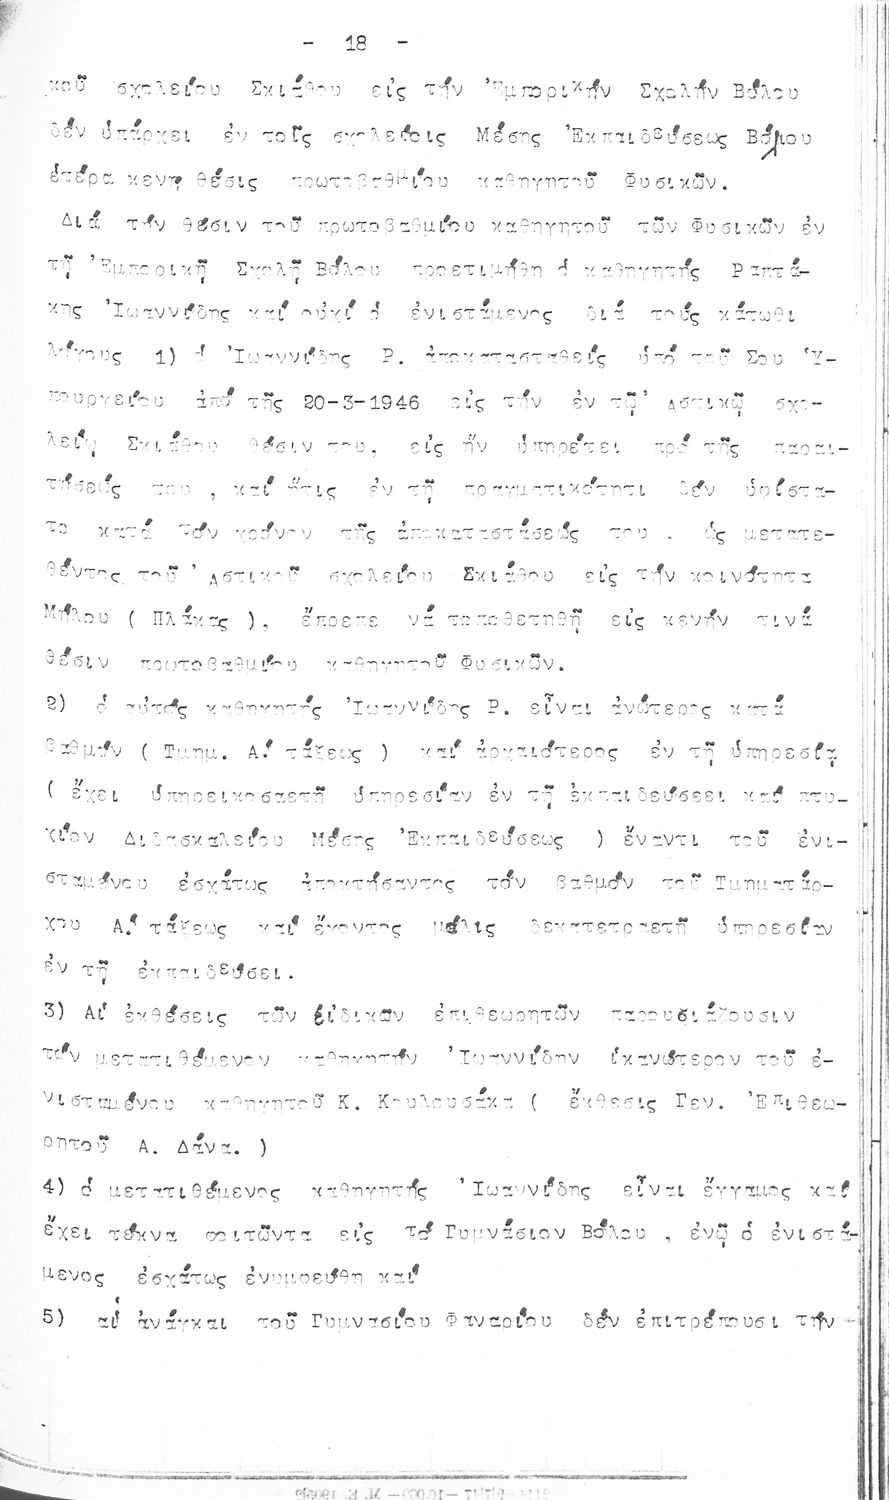 - 18 -
κοῦ σχολείου Σκιάθου εἰς τήν Ἐμπορικήν Σχολήν Βόλου
δέν ὑπάρχει ἐν τοῖς σχολείοις Μέσης Ἐκπαιδεύσεως Βόλου
ἑτέρα κενη θέσις πρωτοβαθμίου καθηγητοῦ Φυσικῶν.
Διά τήν θέσιν τοῦ πρωτοβαθμίου καθηγητοῦ τῶν Φυσικῶν ἐν
τῇ Ἐμπορικῇ Σχολῇ Βόλου προετιμήθη ὁ καθηγητής Ραπτά-
κης Ἰωαννίδης καί οὐχί ὁ ἐνιστάμενος διά τούς κάτωθι
λόγους 1) ὁ Ἰωαννίδης Ρ. ἀποκατασταθείς ὑπό τοῦ Σου Ὑ-
πουργείου ἀπό τῆς 20-3-1946 εἰς τήν ἐν τῷ Ἀστικῷ σχο-
λείῳ Σκιάθου θέσιν του, εἰς ἥν ὑπηρέτει πρό τῆς παραι-
τήσεώς του , καί ἥτις ἐν τῇ πραγματικότητι δέν ὑφίστα-
το κατά τόν χρόνον τῆς ἀποκαταστάσεώς του , ὡς μετατε-
θέντος τοῦ Ἀστικοῦ σχολείου Σκιάθου εἰς τήν κοινότητα
Μήλου ( Πλάκας ), ἔπρεπε νά τοποθετηθῇ εἰς κενήν τινά
θέσιν πρωτοβαθμίου καθηγητοῦ Φυσικῶν.
2) ὁ αὐτός καθηγητής Ἰωαννίδης Ρ. εἶναι ἀνώτερος κατά
βαθμόν ( Τμημ. Α! τάξεως ) καί ἀρχαιότερος ἐν τῇ ὑπηρεσίᾳ
( ἔχει ὑπηρεικοσαετῆ ὑπηρεσίαν ἐν τῇ ἐκπαιδεύσεει καί πτυ-
χίον Διδασκαλείου Μέσης Ἐκπαιδεύσεως ) ἔναντι τοῦ ἐνι-
σταμένου ἐσχάτως ἀποκτήσαντος τόν βαθμόν τοῦ Τμηματάρ-
χου Α! τάξεως καί ἔχοντος μόλις δεκατετραετῆ ὑπηρεσίαν
ἐν τῇ ἐκπαιδεύσει.
3) Αἱ ἐκθέσεις τῶν εἰδικῶν ἐπιθεωρητῶν παρουσιάζουσιν
τόν μετατιθέμενον καθηγητήν Ἰωαννίδην ἱκανώτερον τοῦ ἐ-
νισταμένου καθηγητοῦ Κ. Κουλουσάκα ( ἔκθεσις Γεν. Ἐπιθεω-
ρητοῦ Α. Δάνα. )
4) ὁ μετατιθέμενος καθηγητής Ἰωαννίδης εἶναι ἔγγαμος καί
ἔχει τέκνα φοιτῶντα εἰς τό Γυμνάσιον Βόλου , ἐνῷ ὁ ἐνιστά-
μενος ἐσχάτως ἐνυμφεύθη καί
5) αἱ ἀνάγκαι τοῦ Γυμνασίου Φαναρίου δέν ἐπιτρέπουσι τήν